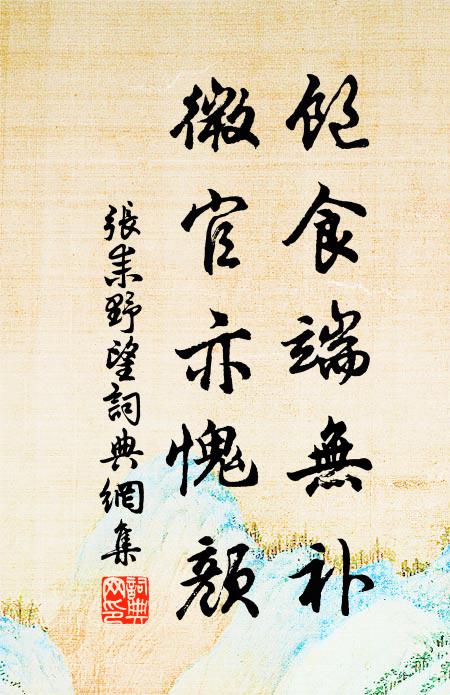 飽食端無补
微官亦愧顏
張耒野望詞典網集
詞典网印